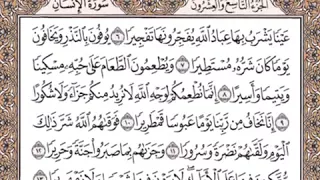 الجزء التاسع والعشرون سورة الإنسان
عَيْنًا يَشْرَبُ بِهَا عِبَادُ اللَّهِ يُفَجِّرُونَهَا تَفْجِيرًا ٦ يُوفُونَ بِالنَّذْرِ وَيَخَافُونَ
يَوْمًا كَانَ شَرُّهُ مُسْتَطِيرًا ٧ وَيُطْعِمُونَ الطَّعَامَ عَلَىٰ حُبِّهِ مِسْكِينًا
وَيَتِيمًا وَأَسِيرًا ٨ إِنَّمَا نُطْعِمُكُمْ لِوَجْهِ اللَّهِ لَا نُرِيدُ مِنكُمْ جَزَاءً وَلَا شُكُورًا
٩ إِنَّا نَخَافُ مِن رَّبِّنَا يَوْمًا عَبُوسًا قَمْطَرِيرًا ١٠ فَوَقَاهُمُ اللَّهُ شَرَّ ذَٰلِكَ
الْيَوْمِ وَلَقَّاهُمْ نَضْرَةً وَسُرُورًا ١١ وَجَزَاهُم بِمَا صَبَرُوا جَنَّةً وَحَرِيرًا ١٢